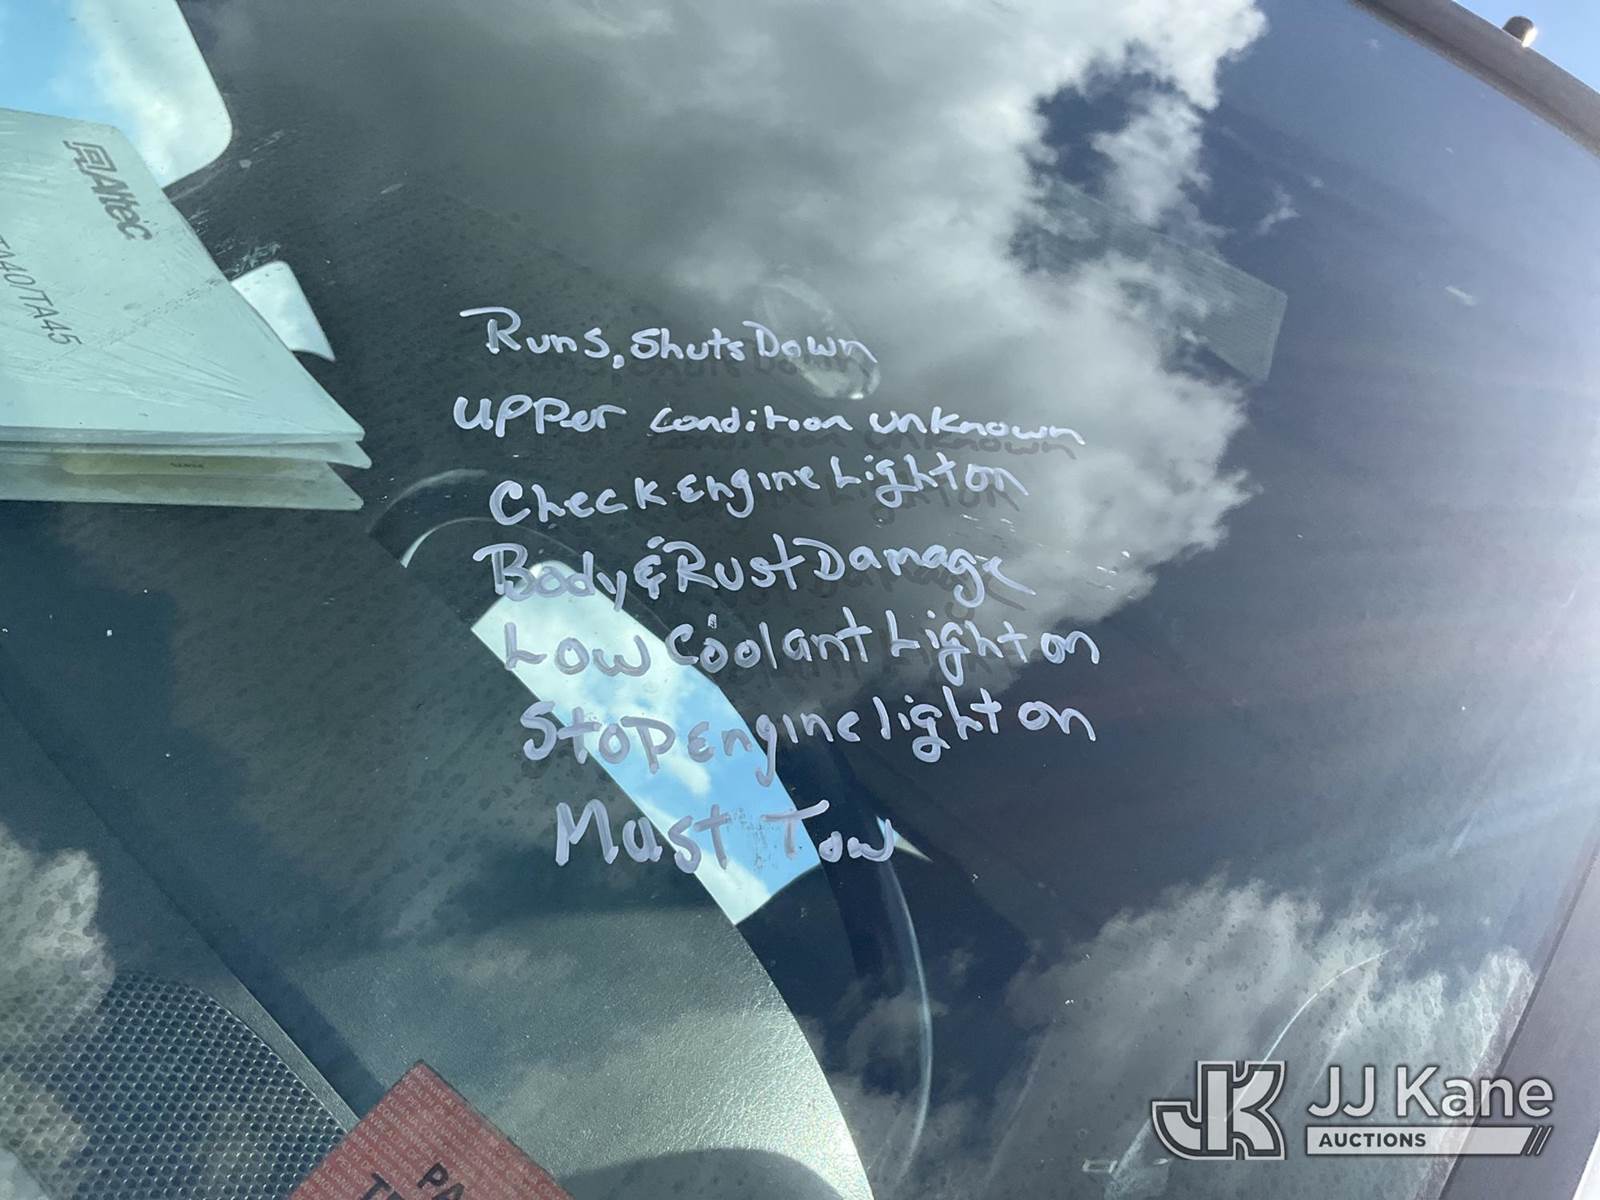 Altec
TA40/TA45
Runs, Shuts Down
Upper Condition unknown
Check Engine Light on
Body & Rust Damage
Low Coolant Light on
Stop Engine light on
Must Tow
JJ Kane
AUCTIONS